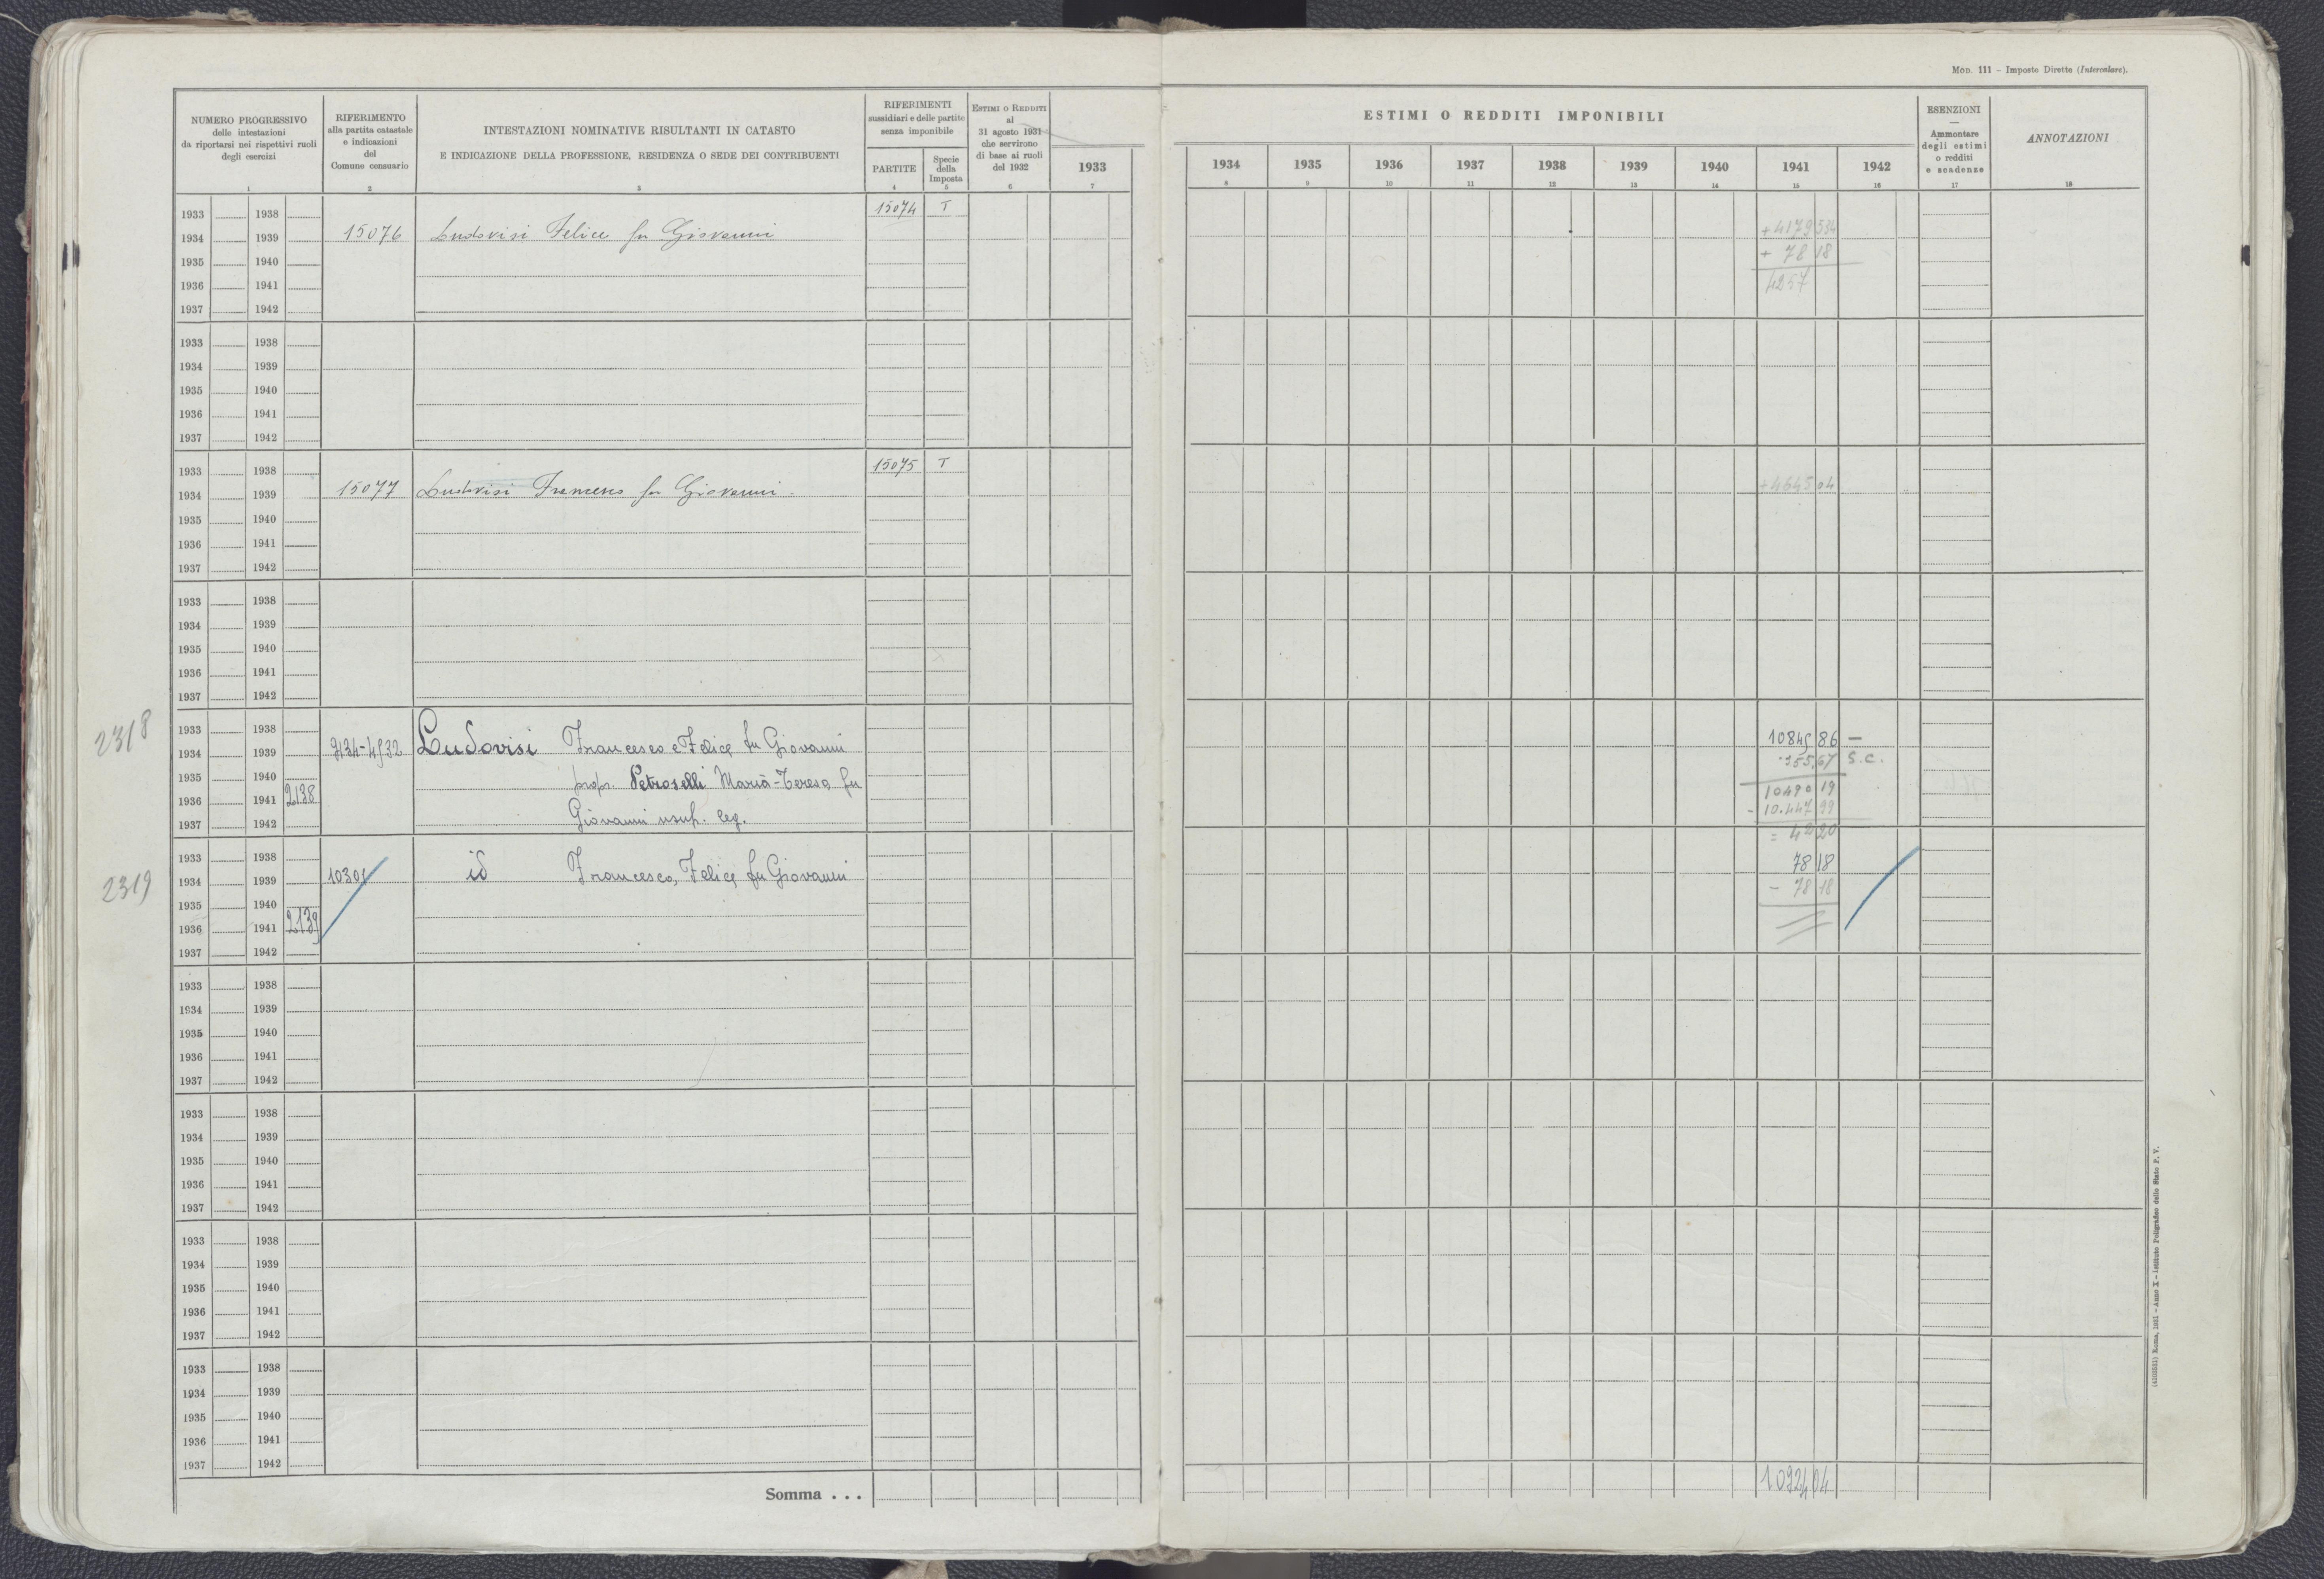 MOD. 111 - Imposte Dirette (Intercalare).
NUMERO PROGRESSIVO
delle intestazioni
da riportarsi nei rispettivi ruoli
degli esercizi
1
RIFERIMENTO
alla partita catastale
e indicazioni
del
Comune censuario
2
INTESTAZIONI NOMINATIVE RISULTANTI IN CATASTO
E INDICAZIONE DELLA PROFESSIONE, RESIDENZA O SEDE DEI CONTRIBUENTI
3
RIFERIMENTI
sussidiari e delle partite
senza imponibile
PARTITE
4
Specie
della
Imposta
5
ESTIMI O REDDITI
al
31 agosto 1931
che servirono
di base ai ruoli
del 1932
6
1933
7
ESTIMI O REDDITI IMPONIBILI
1934 1935 1936 1937 1938 1939 1940 1941 1942
8 9 10 11 12 13 14 15 16
ESENZIONI
—
Ammontare
degli estimi
o redditi
e scadenze
17
ANNOTAZIONI
18
1933 1938 15074 T
1934 1939 15076 Ludovisi Felice fu Giovanni + 4179
1935 1940 + 78 18
1936 1941 4257
1937 1942
1933 1938
1934 1939
1935 1940
1936 1941
1937 1942
1933 1938 15075 T
1934 1939 15077 Ludovisi Francesco fu Giovanni. + 4645 04
1935 1940
1936 1941
1937 1942
1933 1938
1934 1939
1935 1940
1936 1941
1937 1942
2318
1933 1938
1934 1939 9134-4532 Ludovisi Francesco e Felice fu Giovanni 10845 86 —
1935 1940 prop. Petroselli Maria-Teresa fu - 355,67 S.C.
1936 1941 2138 10490 19
1937 1942 Giovanni usuf. leg. - 10.447 99
= 42 20
2319
1933 1938 78 18
1934 1939 10301 id Francesco, Felice fu Giovanni
1935 1940 - 78 18
1936 1941 2139
1937 1942
1933 1938
1934 1939
1935 1940
1936 1941
1937 1942
1933 1938
1934 1939
1935 1940
1936 1941
1937 1942
1933 1938
1934 1939
1935 1940
1936 1941
1937 1942
1933 1938
1934 1939
1935 1940
1936 1941
1937 1942
Somma . . . 10924 04
Roma, 1931 - Anno X - Istituto Poligrafico dello Stato P. V.